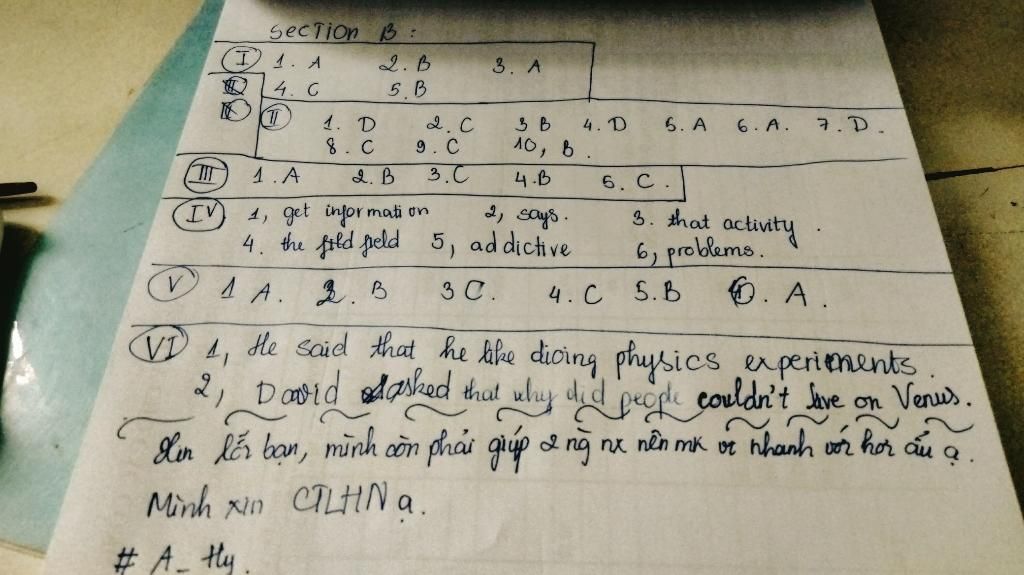 Section B :
I 1. A 2. B 3. A
4. C 5. B
II 1. D 2. C 3 B 4. D 5. A 6. A. 7. D.
8. C 9. C 10, B.
III 1. A 2. B 3. C 4. B 5. C.
IV 1, get information 2, says. 3. that activity.
4. the field 5, addictive 6, problems.
V 1 A. 2. B 3 C. 4. C 5. B 6. A.
VI 1, He said that he like dioing physics experiments.
2, David asked that why did people couldn't live on Venus.
Xin lỗi bạn, mình còn phải giúp 2 ng nx nên mk vt nhanh với hơi ẩu ạ.
Mình xin CTLHN ạ.
# A_ Hy.